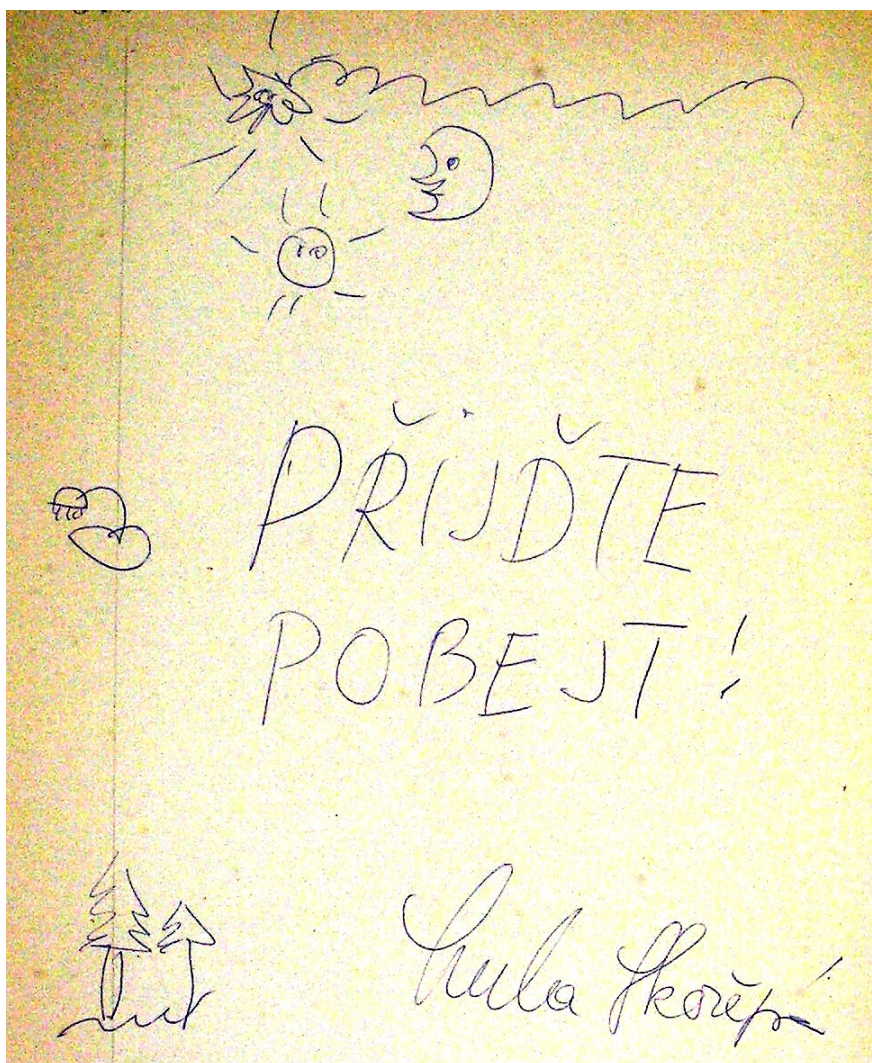 PŘIJĎTE
POBEJT!
Luba Skořepa